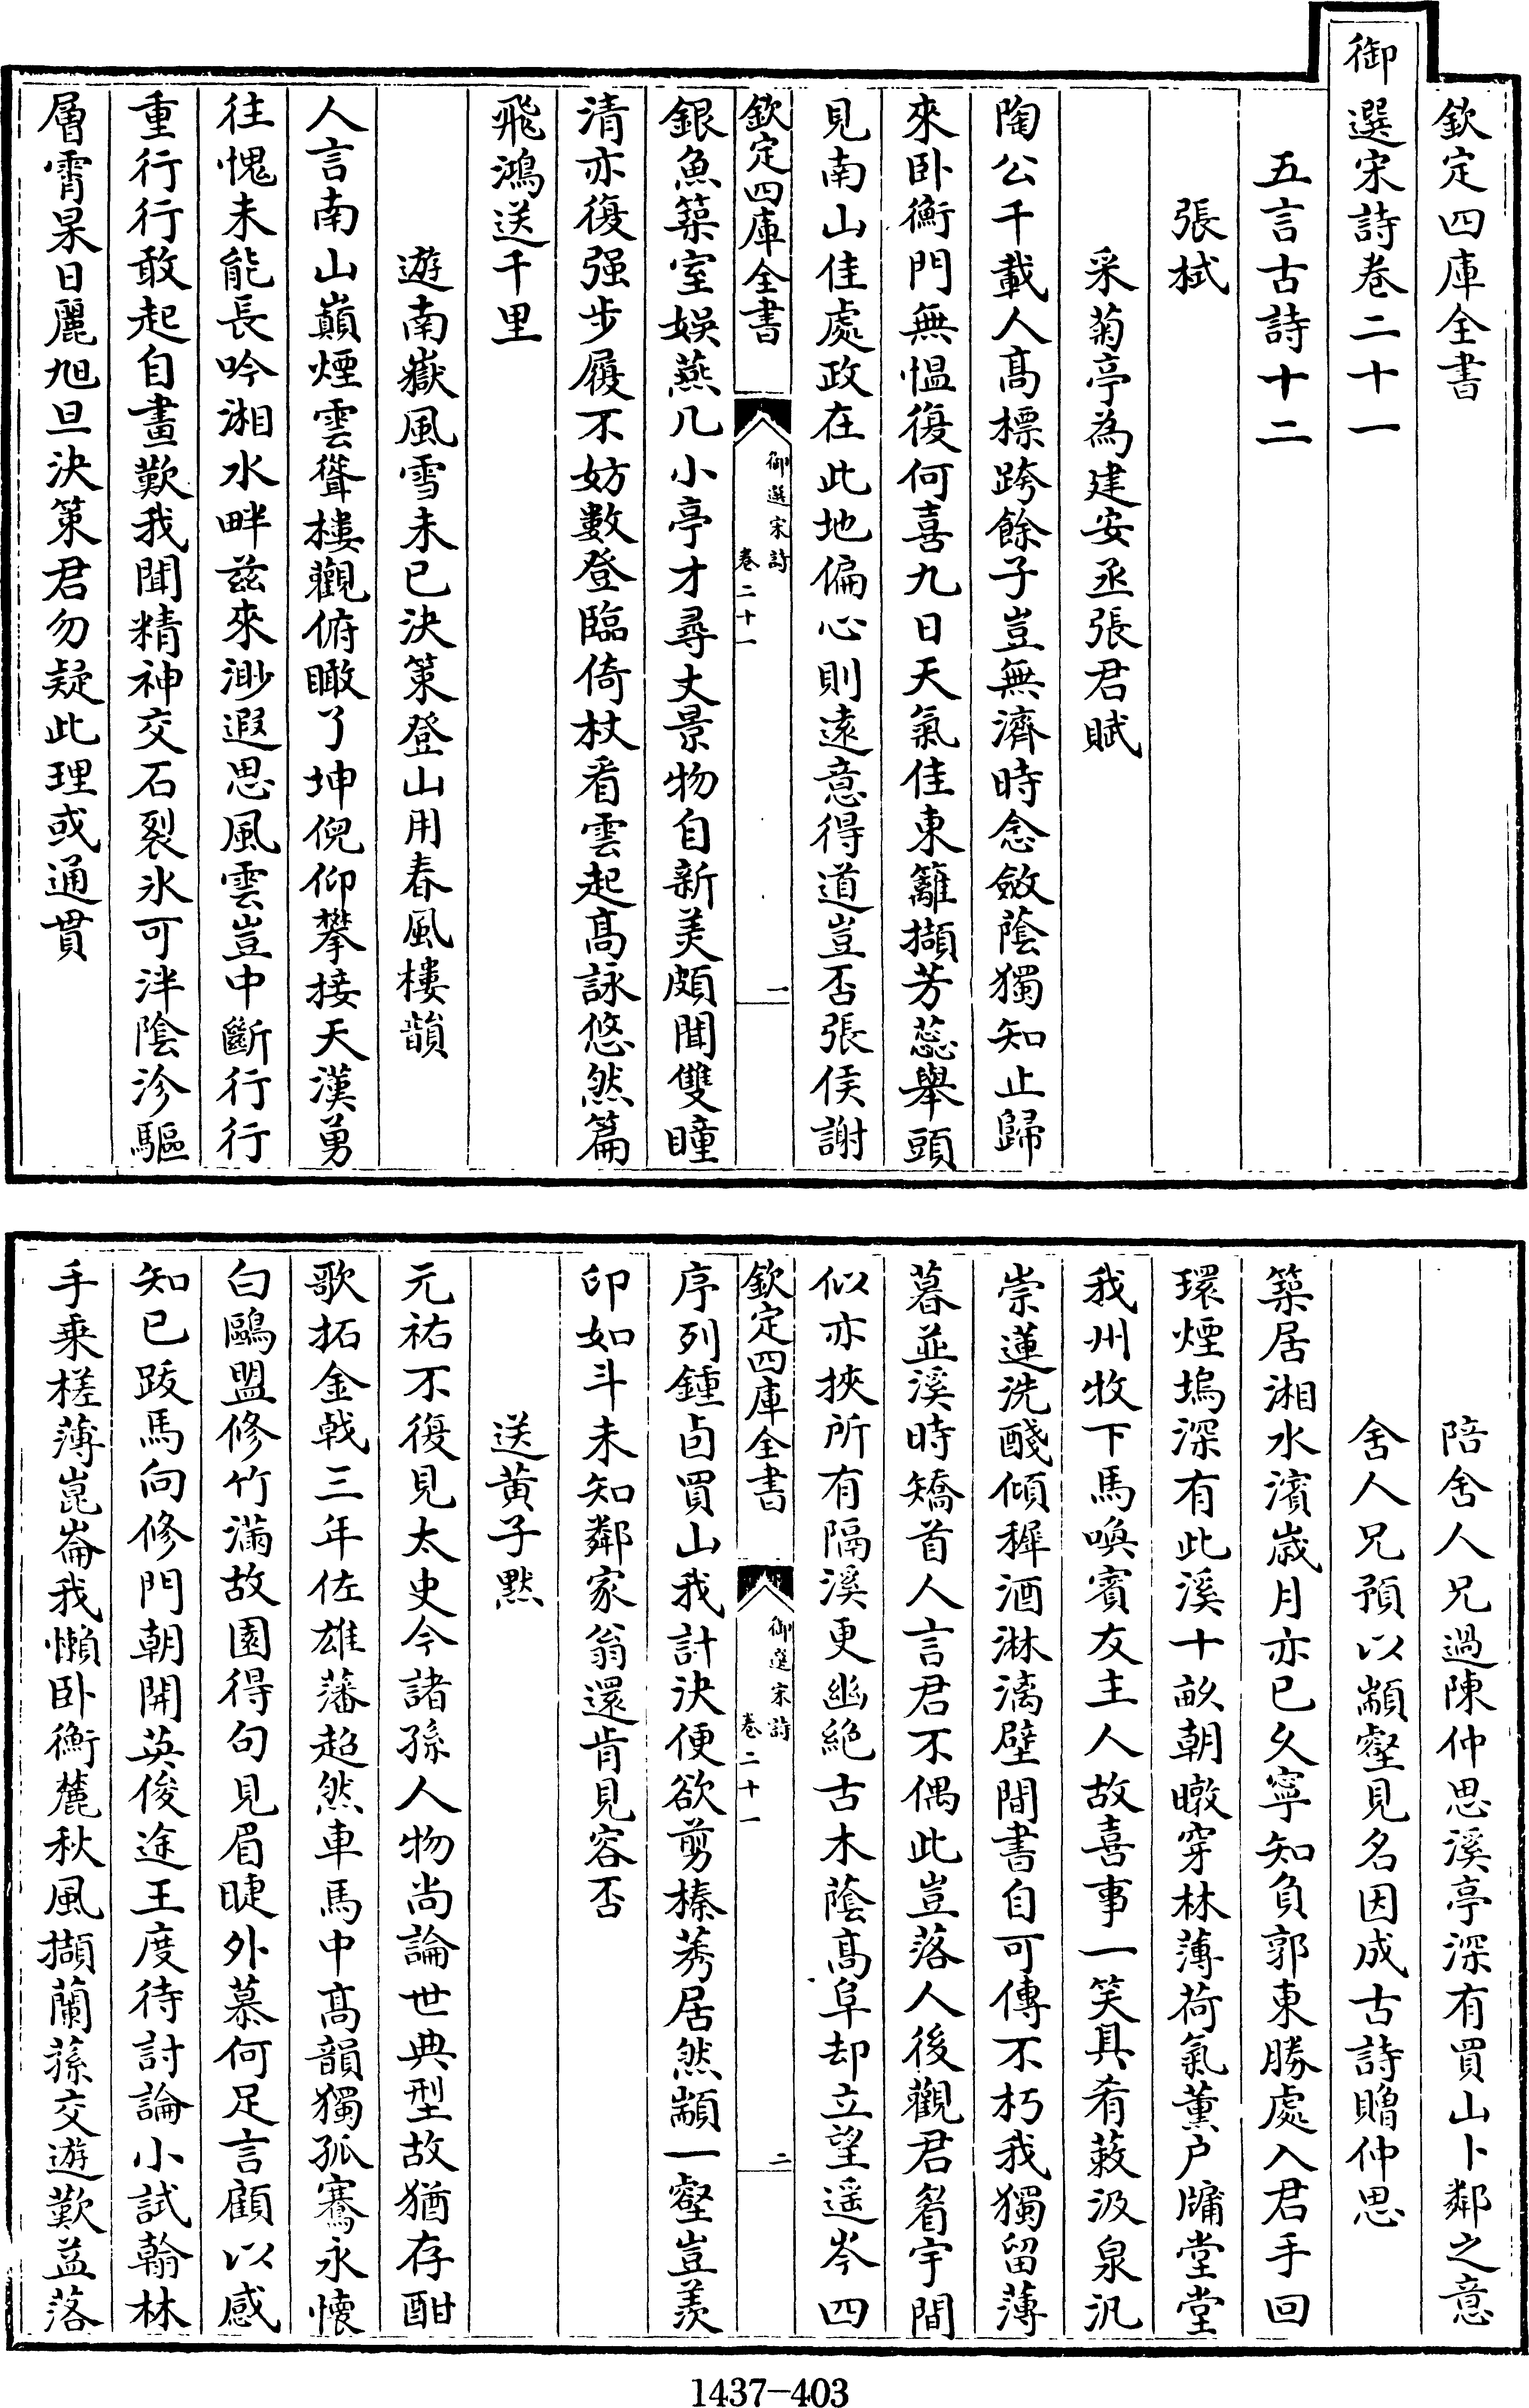 欽定四庫全書
御選宋詩卷二十一
五言古詩十二
張栻
采菊亭為建安丞張君賦
陶公千載人髙標跨餘子豈無濟時念斂䕃獨知止歸
來卧衡門無愠復何喜九日天氣佳東籬擷芳蕊舉頭
見南山佳處政在此地偏心則逺意得道豈否張侯謝
欽定四庫全書
御選宋詩
卷二十一
一
銀魚築室娱燕几小亭才尋丈景物自新美頗聞雙瞳
清亦復强步履不妨數登臨倚杖看雲起髙詠悠然篇
飛鴻送千里
遊南嶽風雪未已決策登山用春風樓韻
人言南山巔煙雲聳樓觀俯瞰了坤倪仰攀接天漢勇
往愧未能長吟湘水畔兹來渺遐思風雲豈中斷行行
重行行敢起自畫歎我聞精神交石裂氷可泮陰沴驅
層霄杲日麗旭旦決策君勿疑此理或通貫
陪舍人兄過陳仲思溪亭深有買山卜鄰之意
舍人兄預以顓壑見名因成古詩贈仲思
築居湘水濱歲月亦已久寧知負郭東勝處入君手回
環煙塢深有此溪十畝朝暾穿林薄荷氣薰户牖堂堂
我州牧下馬喚賓友主人故喜事一笑具肴蔌汲泉汎
崇蓮洗醆傾穉酒淋漓壁間書自可傳不朽我獨留薄
暮並溪時矯首人言君不偶此豈落人後觀君眉宇間
似亦挾所有隔溪更幽絶古木䕃髙阜却立望遥岑四
欽定四庫全書
御選宋詩
卷二十一
二
序列鍾卣買山我計決便欲剪榛莠居然顓一壑豈羨
印如斗未知鄰家翁還肯見容否
送黄子默
元祐不復見太史今諸孫人物尚論世典型故猶存酣
歌拓金戟三年佐雄藩超然車馬中髙韻獨孤騫永懷
白鷗盟修竹滿故園得句見眉睫外慕何足言顧以感
知已跋馬向修門朝開英俊途王度待討論小試翰林
手乗槎薄崑崙我懶卧衡麓秋風擷蘭蓀交遊歎益落
1437-403